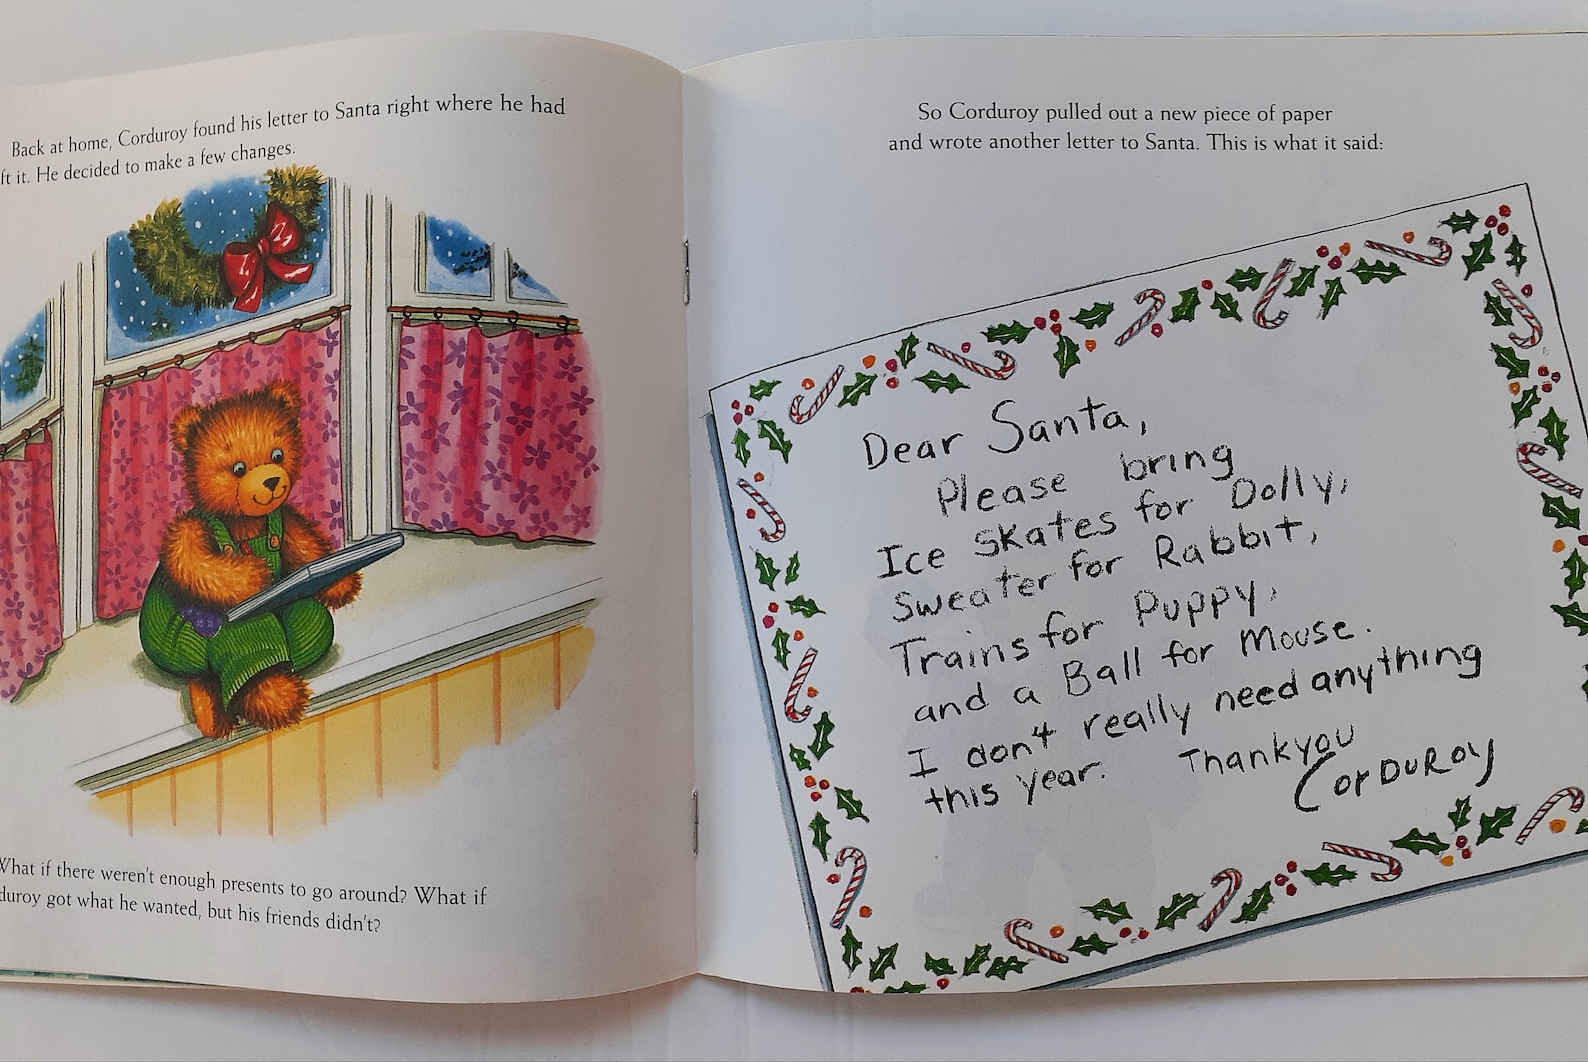 Back at home, Corduroy found his letter to Santa right where he had
ft it. He decided to make a few changes.
What if there weren't enough presents to go around? What if
duroy got what he wanted, but his friends didn't?
So Corduroy pulled out a new piece of paper
and wrote another letter to Santa. This is what it said:
Dear Santa,
Please bring
Ice skates for Dolly,
Sweater for Rabbit,
Trains for Puppy,
and a Ball for Mouse.
I don't really need anything
this year. Thankyou
CorDuRoy